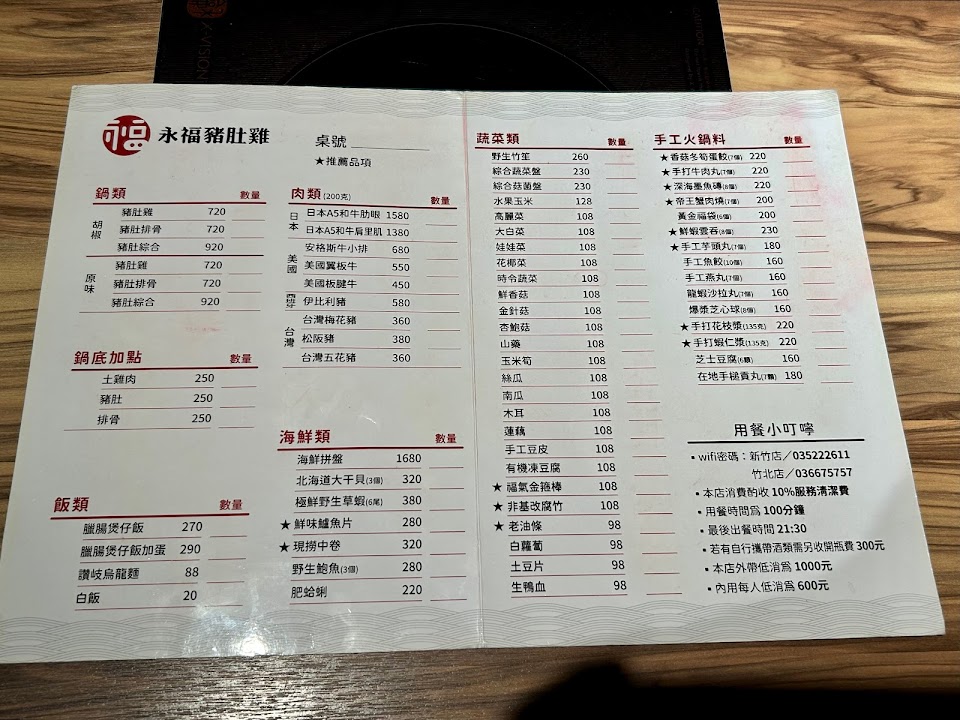 福 永福豬肚雞
桌號
★推薦品項
鍋類 數量
胡椒
豬肚雞 720
豬肚排骨 720
豬肚綜合 920
原味
豬肚雞 720
豬肚排骨 720
豬肚綜合 920
鍋底加點 數量
土雞肉 250
豬肚 250
排骨 250
飯類 數量
臘腸煲仔飯 270
臘腸煲仔飯加蛋 290
讚岐烏龍麵 88
白飯 20
肉類(200克) 數量
日本
日本A5和牛肋眼 1580
日本A5和牛肩里肌 1380
美國
安格斯牛小排 680
美國翼板牛 550
美國板腱牛 450
西班牙
伊比利豬 580
台灣
台灣梅花豬 360
松阪豬 380
台灣五花豬 360
海鮮類 數量
海鮮拼盤 1680
北海道大干貝(3個) 320
極鮮野生草蝦(6尾) 380
★ 鮮味鱸魚片 280
★ 現撈中卷 320
野生鮑魚(3個) 280
肥蛤蜊 220
蔬菜類 數量
野生竹笙 260
綜合蔬菜盤 230
綜合菇菌盤 230
水果玉米 128
高麗菜 108
大白菜 108
娃娃菜 108
花椰菜 108
時令蔬菜 108
鮮香菇 108
金針菇 108
杏鮑菇 108
山藥 108
玉米筍 108
絲瓜 108
南瓜 108
木耳 108
蓮藕 108
手工豆皮 108
有機凍豆腐 108
★ 福氣金箍棒 108
★ 非基改腐竹 108
★ 老油條 98
白蘿蔔 98
土豆片 98
生鴨血 98
手工火鍋料 數量
★ 香菇冬筍蛋餃(7個) 220
★ 手打牛肉丸(7個) 220
★ 深海墨魚磚(8個) 220
★ 帝王蟹肉燒(7個) 200
黃金福袋(6個) 200
★ 鮮蝦雲吞(8個) 230
★ 手工芋頭丸(7個) 180
手工魚餃(10個) 160
手工燕丸(7個) 160
龍蝦沙拉丸(7個) 160
爆漿芝心球(8個) 160
★ 手打花枝漿(135克) 220
★ 手打蝦仁漿(135克) 220
芝士豆腐(6顆) 160
在地手槌貢丸(7顆) 180
用餐小叮嚀
▪ wifi密碼：新竹店／035222611
竹北店／036675757
▪ 本店消費酌收 10%服務清潔費
▪ 用餐時間為 100分鐘
▪ 最後出餐時間 21:30
▪ 若有自行攜帶酒類需另收開瓶費 300元
▪ 本店外帶低消為 1000元
▪ 內用每人低消為 600元